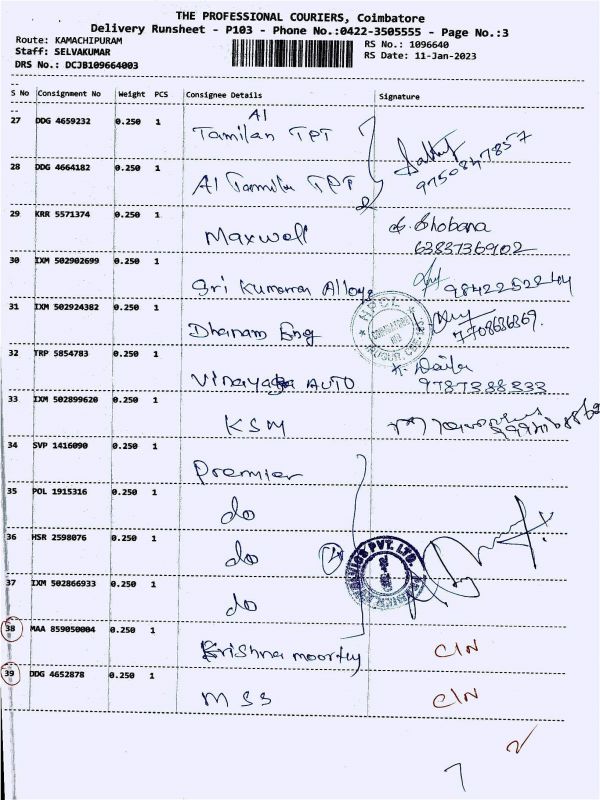 THE PROFESSIONAL COURIERS, Coimbatore
Delivery Runsheet - P103 - Phone No.:0422-3505555 - Page No.:3
Route: KAMACHIPURAM
RS No.: 1096640
Staff: SELVAKUMAR
RS Date: 11-Jan-2023
DRS No.: DCJB109664003
S No Consignment No Weight PCS Consignee Details Signature
27 DDG 4659232 0.250 1 Al Tamilan TPT
9750847857
28 DDG 4664182 0.250 1 Al Tamilan TPT
29 KRR 5571374 0.250 1 Maxwell S. Shobana
6383736902
30 IXM 502902699 0.250 1 Sri Kumaran Alloys
31 IXM 502924382 0.250 1 Dhanam Eng
HPCL
32 TRP 5854783 0.250 1 Vinayaga AUTO
9787388333
33 IXM 502899620 0.250 1 KSM
34 SVP 1416090 0.250 1 Premier
35 POL 1915316 0.250 1 do
36 HSR 2598076 0.250 1 do
PVT. LTD.
37 IXM 502866933 0.250 1 do
38 MAA 859050004 0.250 1 Krishna moorthy C/N
39 DDG 4652878 0.250 1 MSS C/N
2
7